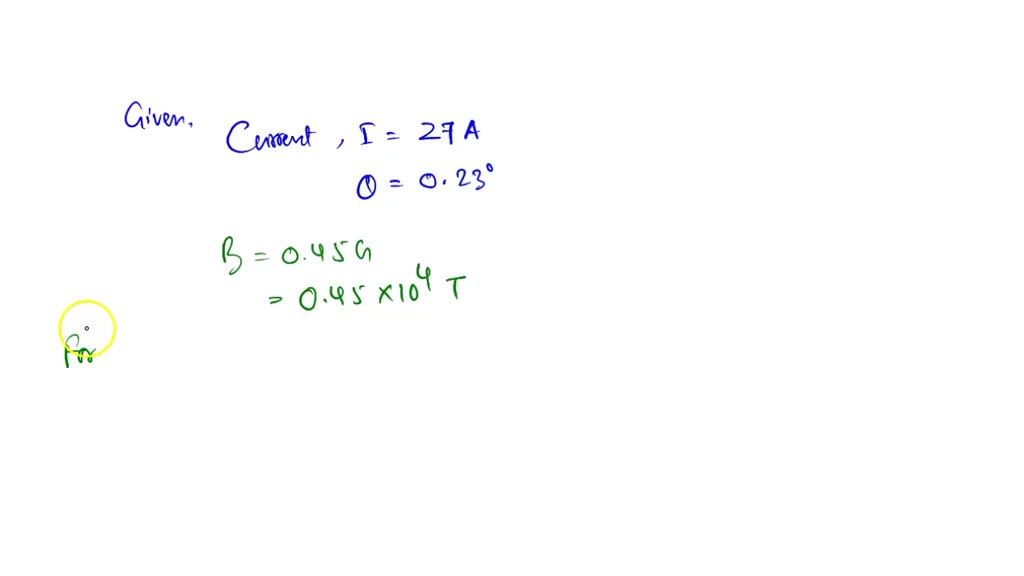 Given.
Current, I = 27 A
θ = 0.23°
B = 0.45 G
= 0.45 × 10⁴ T
for